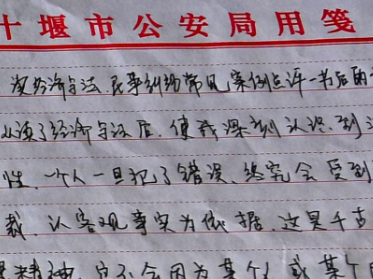 十堰市公安局用笺
法.民事纠纷常见案例点评一书后
读了经济与法后,使我深刻认识到
性,一个人一旦犯了错误,终究会受到
裁,认客观事实为依据,这是千古
会因为某个人或某个